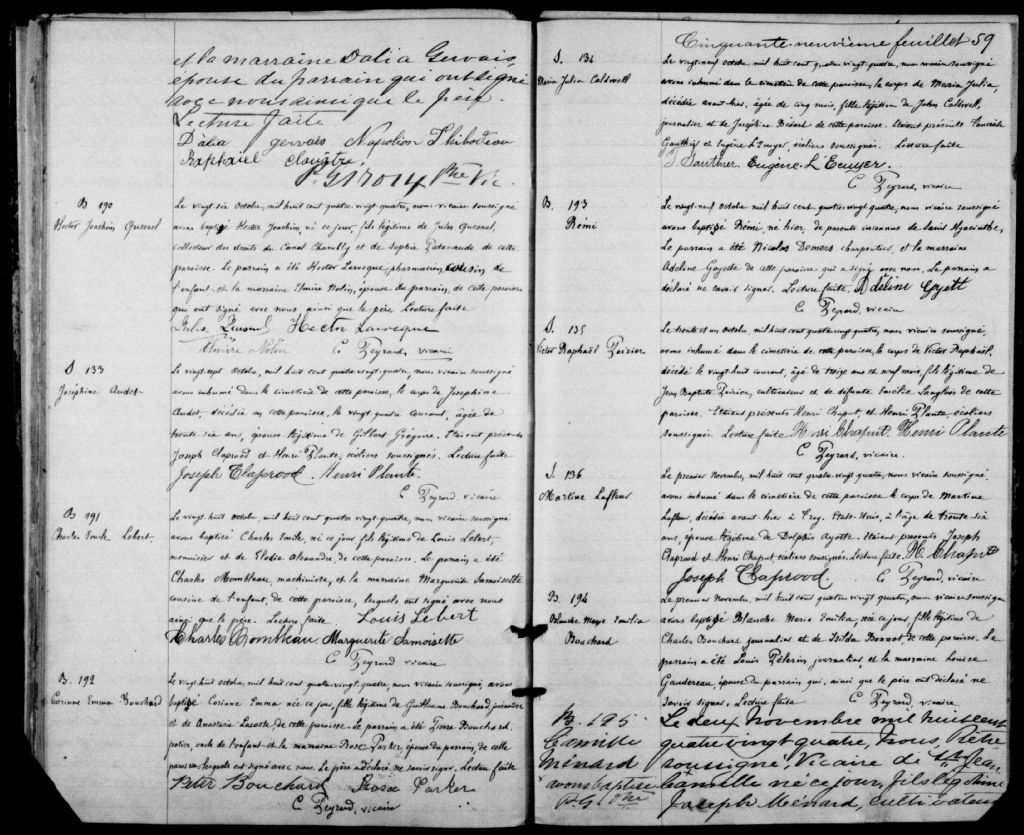 et la marraine Dalia Gervais,
épouse du parrain qui ont signé
avec nous ainsi que le père.
Lecture faite
Dalia gervais Napoléon Thibodeau
Raphael
Ptre Vic.
B 190
Hector Joachim Quesnel
Le vingt six Octobre, mil huit cent quatre vingt quatre, nous vicaire soussigné
avons baptisé Hector Joachim, né ce jour, fils légitime de Jules Quesnel,
collecteur des droits du Canal Chambly et de Sophie Patenaude de cette
paroisse. Le parrain a été Hector Larocque, pharmacien, cousin de
l'enfant et la marraine Elmire Nolin, épouse du parrain, de cette paroisse
qui ont signé avec nous ainsi que le père Lecture faite
Jules Quesnel Hector Larocque
Elmire Nolin C Peyrard, vicaire
S 133
Joséphine Audet
Le vingt sept Octobre, mil huit cent quatre vingt quatre, nous vicaire soussigné
avons inhumé dans le cimetière de cette paroisse, le corps de Josephine
Audet, décédée en cette paroisse, le vingt quatre courant, âgée de
trente six ans, épouse légitime de Gilbert Grégoire. Etaient présents
Joseph Claprood et Henri Plante, écoliers soussignés. Lecture faite
Joseph Claprood. Henri Plante.
C Peyrard, vicaire
B 191
Charles Emile Lebert
Le vingt huit Octobre, mil huit cent quatre vingt quatre, nous vicaire soussigné
avons baptisé Charles Emile, né ce jour fils légitime de Louis Lebert,
menuisier et de Elodie Alexandre, de cette paroisse. Le parrain a été
Charles Mombleau, machiniste, et la marraine Marguerite Samoisette
cousine de l'enfant, de cette paroisse, lesquels ont signé avec nous
ainsi que le père. Lecture faite Louis Lebert
Charles Mombleau. Marguerite Samoisette
C Peyrard vicaire
B. 192
Corinne Emma Bouchard
Le vingt huit Octobre, mil huit cent quatre vingt quatre, nous vicaire soussigné, avons
baptisé Corinne Emma née ce jour, fille légitime de Guillaume Bouchard,
et de Anastasie Lacoste, de cette paroisse. Le parrain a été Pierre Bouchard,
potier, oncle de l'enfant et la marraine Rose Parker, épouse du parrain, de cette
paroisse, lesquels ont signé avec nous. Le père a déclaré ne savoir signer. Lecture faite
Peter Bouchard Rose Parker
C Peyrard, vicaire
Cinquante-neuvième feuillet 59
S. 134
Maria Julia Caldwell
Le vingt neuf octobre, mil huit cent quatre vingt quatre, nous vicaire soussigné
avons inhumé dans le cimetière de cette paroisse, le corps de Maria Julia,
décédée avant hier, âgée de cinq mois, fille légitime de John Caldwell,
journalier et de Joséphine Bédard de cette paroisse. Etaient présents
Gauthier et Eugène L'Ecuyer, écoliers soussignés. Lecture faite
Gauthier. Eugène L'Ecuyer.
C Peyrard, vicaire
B. 193
Rémi
Le vingt neuf Octobre, mil huit cent quatre vingt quatre, nous vicaire soussigné
avons baptisé Rémi, né hier, de parents inconnus de Saint Hyacinthe,
Le parrain a été Nicolas Demers charpentier, et la marraine
Adeline Goyette de cette paroisse qui a signé avec nous. Le parrain a
déclaré ne savoir signer. Lecture faite. Adéline Goyett
C Peyrard, vicaire
S. 135
Victor Raphaël Poirier
Le trente et un Octobre, mil huit cent quatre vingt quatre, nous vicaire soussigné,
avons inhumé dans le cimetière de cette paroisse, le corps de Victor Raphaël,
décédé le vingt huit courant, âgé de treize ans et neuf mois, fils légitime de
Jean Baptiste Poirier, cultivateur et de défunte Emélie Langlois de cette
paroisse. Etaient présents Henri Chaput, et Henri Plante, écoliers
soussignés. Lecture faite Henri Chaput. Henri Plante
C Peyrard, vicaire.
S. 136
Martine Lafleur
Le premier Novembre, mil huit cent quatre vingt quatre, nous vicaire soussigné,
avons inhumé dans le cimetière de cette paroisse le corps de Martine
Lafleur, décédée avant hier à Troy, Etats-Unis, à l'âge de trente six
ans, épouse légitime de Dolphis Ayotte. Etaient présents Joseph
Claprood et Henri Chaput, écoliers soussignés. Lecture faite. H. Chaput
Joseph Claprood. C. Peyrard, vicaire
B. 194
Blanche Marie Emilia
Bouchard
Le premier Novembre, mil huit cent quatre vingt quatre, nous vicaire soussigné
avons baptisé Blanche Marie Emilia, née ce jour, fille légitime de
Charles Bouchard journalier et de Exilda Bonnet, de cette paroisse. Le
parrain a été Louis Pélerin, journalier, et la marraine Louise
Gaudereau, épouse du parrain qui, ainsi que le père ont déclaré ne
savoir signer. Lecture faite C Peyrard, vicaire
B. 195.
Camille
Ménard
avons baptisé
P. G Ptre
Le deux Novembre mil huit cent
quatre vingt quatre, nous, Prêtre
soussigné Vicaire de St Jean
Camille né ce jour, fils légitime
Joseph Ménard, cultivateur